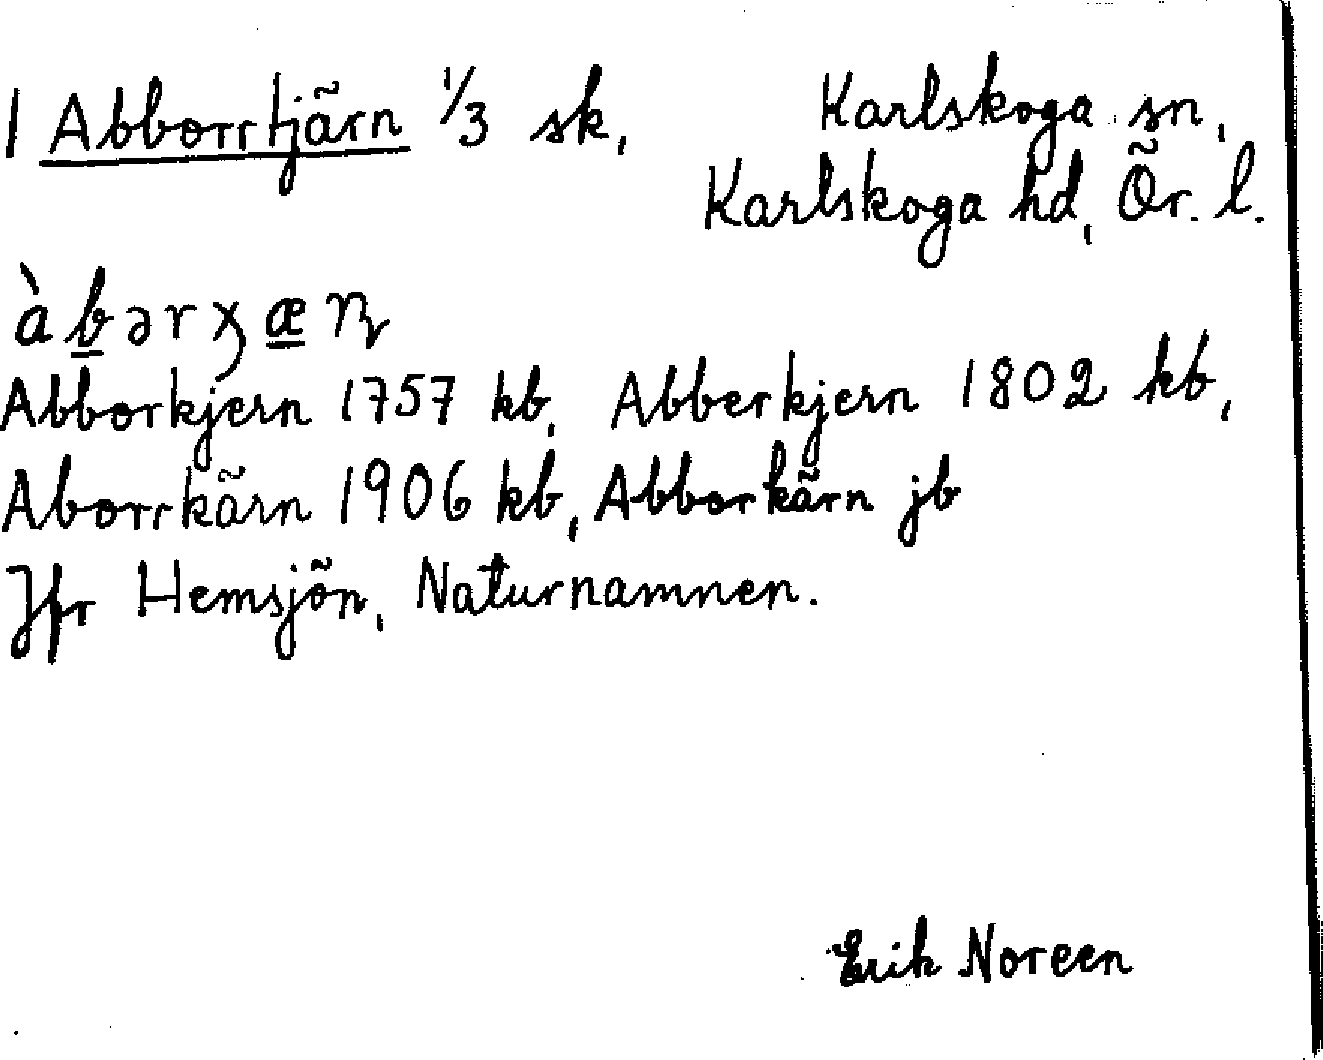 1 Abborrtjärn 1/3 sk, Karlskoga sn,
Karlskoga hd, Ör. l.
àbərꭓæɳ
Abborkjern 1757 kb, Abberkjern 1802 kb,
Aborrkärn 1906 kb, Abborkärn jb
Jfr Hemsjön, Naturnamnen.
Erik Noreen